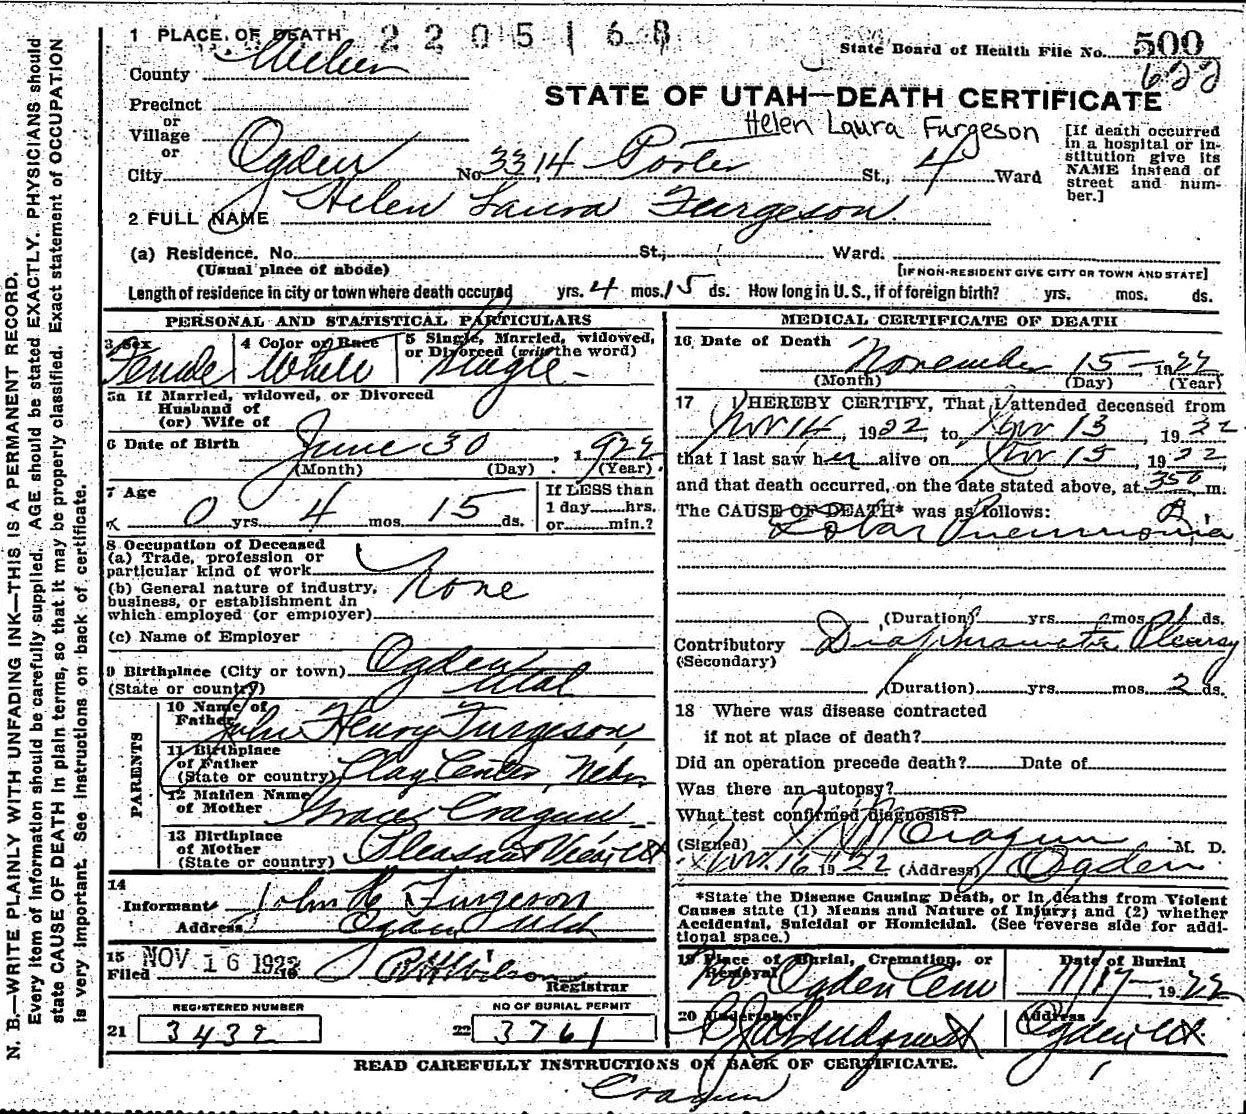 1 PLACE OF DEATH 2205168
State Board of Health File No. 500
622
County Weber
STATE OF UTAH—DEATH CERTIFICATE
Precinct
or
Village
or
Helen Laura Furgeson
[If death occurred in a hospital or institution give its NAME instead of street and number.]
City Ogden No 3314 Porter St., 4 Ward
2 FULL NAME Helen Laura Furgeson
(a) Residence. No. St., Ward.
(Usual place of abode) [IF NON-RESIDENT GIVE CITY OR TOWN AND STATE]
Length of residence in city or town where death occured yrs. 4 mos. 15 ds. How long in U.S., if of foreign birth? yrs. mos. ds.
PERSONAL AND STATISTICAL PARTICULARS
3 Sex Female
4 Color or Race White
5 Single, Married, widowed, or Divorced (write the word) Single
5a If Married, widowed, or Divorced
Husband of
(or) Wife of
6 Date of Birth June 30, 1922
(Month) (Day) (Year)
7 Age 0 yrs. 4 mos. 15 ds.
If LESS than
1 day hrs.
or min.?
8 Occupation of Deceased
(a) Trade, profession or
particular kind of work
(b) General nature of industry,
business, or establishment in
which employed (or employer)
None
(c) Name of Employer
9 Birthplace (City or town) Ogden
(State or country) Utah
PARENTS
10 Name of Father John Henry Furgeson
11 Birthplace of Father (State or country) Clay Center, Nebr
12 Maiden Name of Mother Grace Cragun
13 Birthplace of Mother (State or country) Pleasant View Ut
14
Informant John H Furgeson
Address Ogden Utah
15 Filed NOV 16 1922 19 Wilson
Registrar
REGISTERED NUMBER
21 3432
NO OF BURIAL PERMIT
22 3761
MEDICAL CERTIFICATE OF DEATH
16 Date of Death November 15 1922
(Month) (Day) (Year)
17 I HEREBY CERTIFY, That I attended deceased from
Nov 14, 1922, to Nov 15 1922
that I last saw her alive on Nov 15, 1922,
and that death occurred, on the date stated above, at 350 m.
The CAUSE OF DEATH* was as follows:
Lobar Pneumonia
(Duration) yrs. mos. ds.
Contributory Diaphramatic Pleursy
(Secondary)
(Duration) yrs. mos. 2 ds.
18 Where was disease contracted
if not at place of death?
Did an operation precede death? Date of
Was there an autopsy?
What test confirmed diagnosis?
(Signed) Cragun M. D.
Nov. 16 1922 (Address) Ogden
*State the Disease Causing Death, or in deaths from Violent
Causes state (1) Means and Nature of Injury; and (2) whether
Accidental, Suicidal or Homicidal. (See reverse side for additional space.)
19 Place of Burial, Cremation, or Removal Ogden Cem
Date of Burial 11/17 1922
20 Undertaker
Address Ogden Ut
READ CAREFULLY INSTRUCTIONS ON BACK OF CERTIFICATE.
Cragun
N. B.—WRITE PLAINLY WITH UNFADING INK—THIS IS A PERMANENT RECORD.
Every item of information should be carefully supplied. AGE should be stated EXACTLY. PHYSICIANS should
state CAUSE OF DEATH in plain terms, so that it may be properly classified. Exact statement of OCCUPATION
is very important. See instructions on back of certificate.